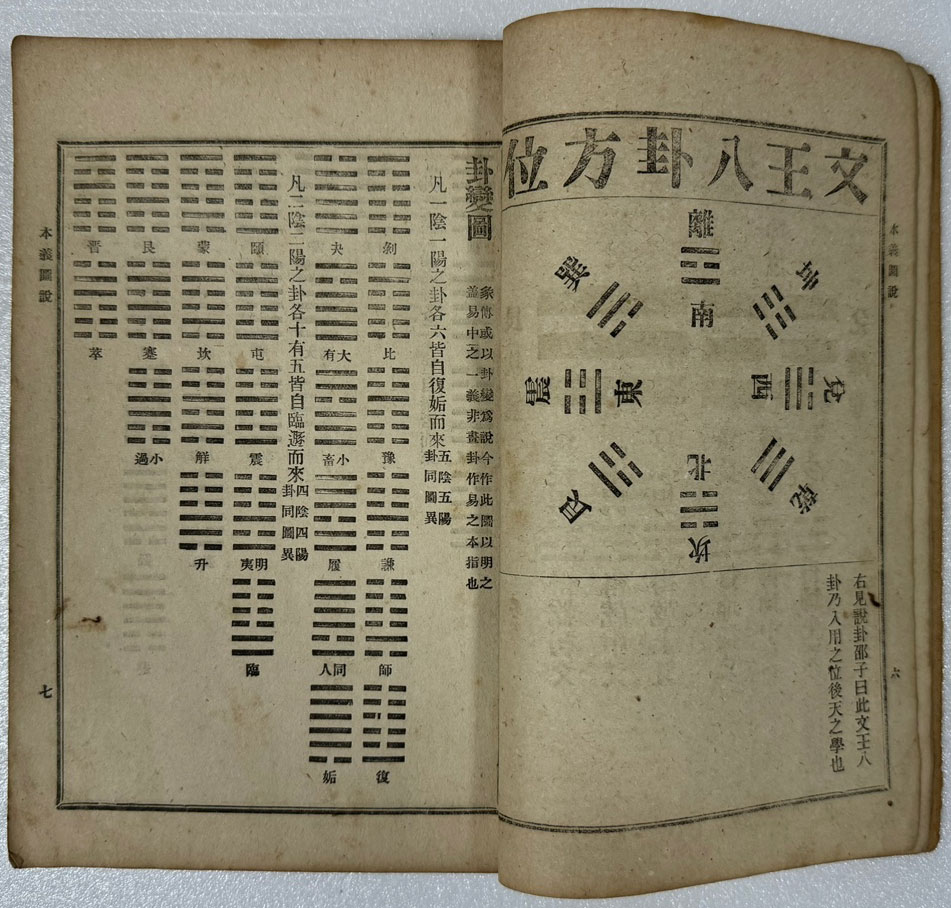 文王八卦方位
離
南
坤
兌
西
乾
北
坎
艮
震
東
巽
右見說卦邵子曰此文王八
卦乃入用之位後天之學也
本義圖說
六
卦變圖
彖傳或以卦變爲說今作此圖以明之
蓋易中之一義非畫卦作易之本指也
凡一陰一陽之卦各六皆自復姤而來
五陰五陽
卦同圖異
剝
比
豫
謙
師
復
夬
大有
小畜
履
同人
姤
凡二陰二陽之卦各十有五皆自臨遯而來
四陰四陽
卦同圖異
頤
屯
震
明夷
臨
蒙
坎
解
升
艮
蹇
小過
晉
萃
本義圖說
七